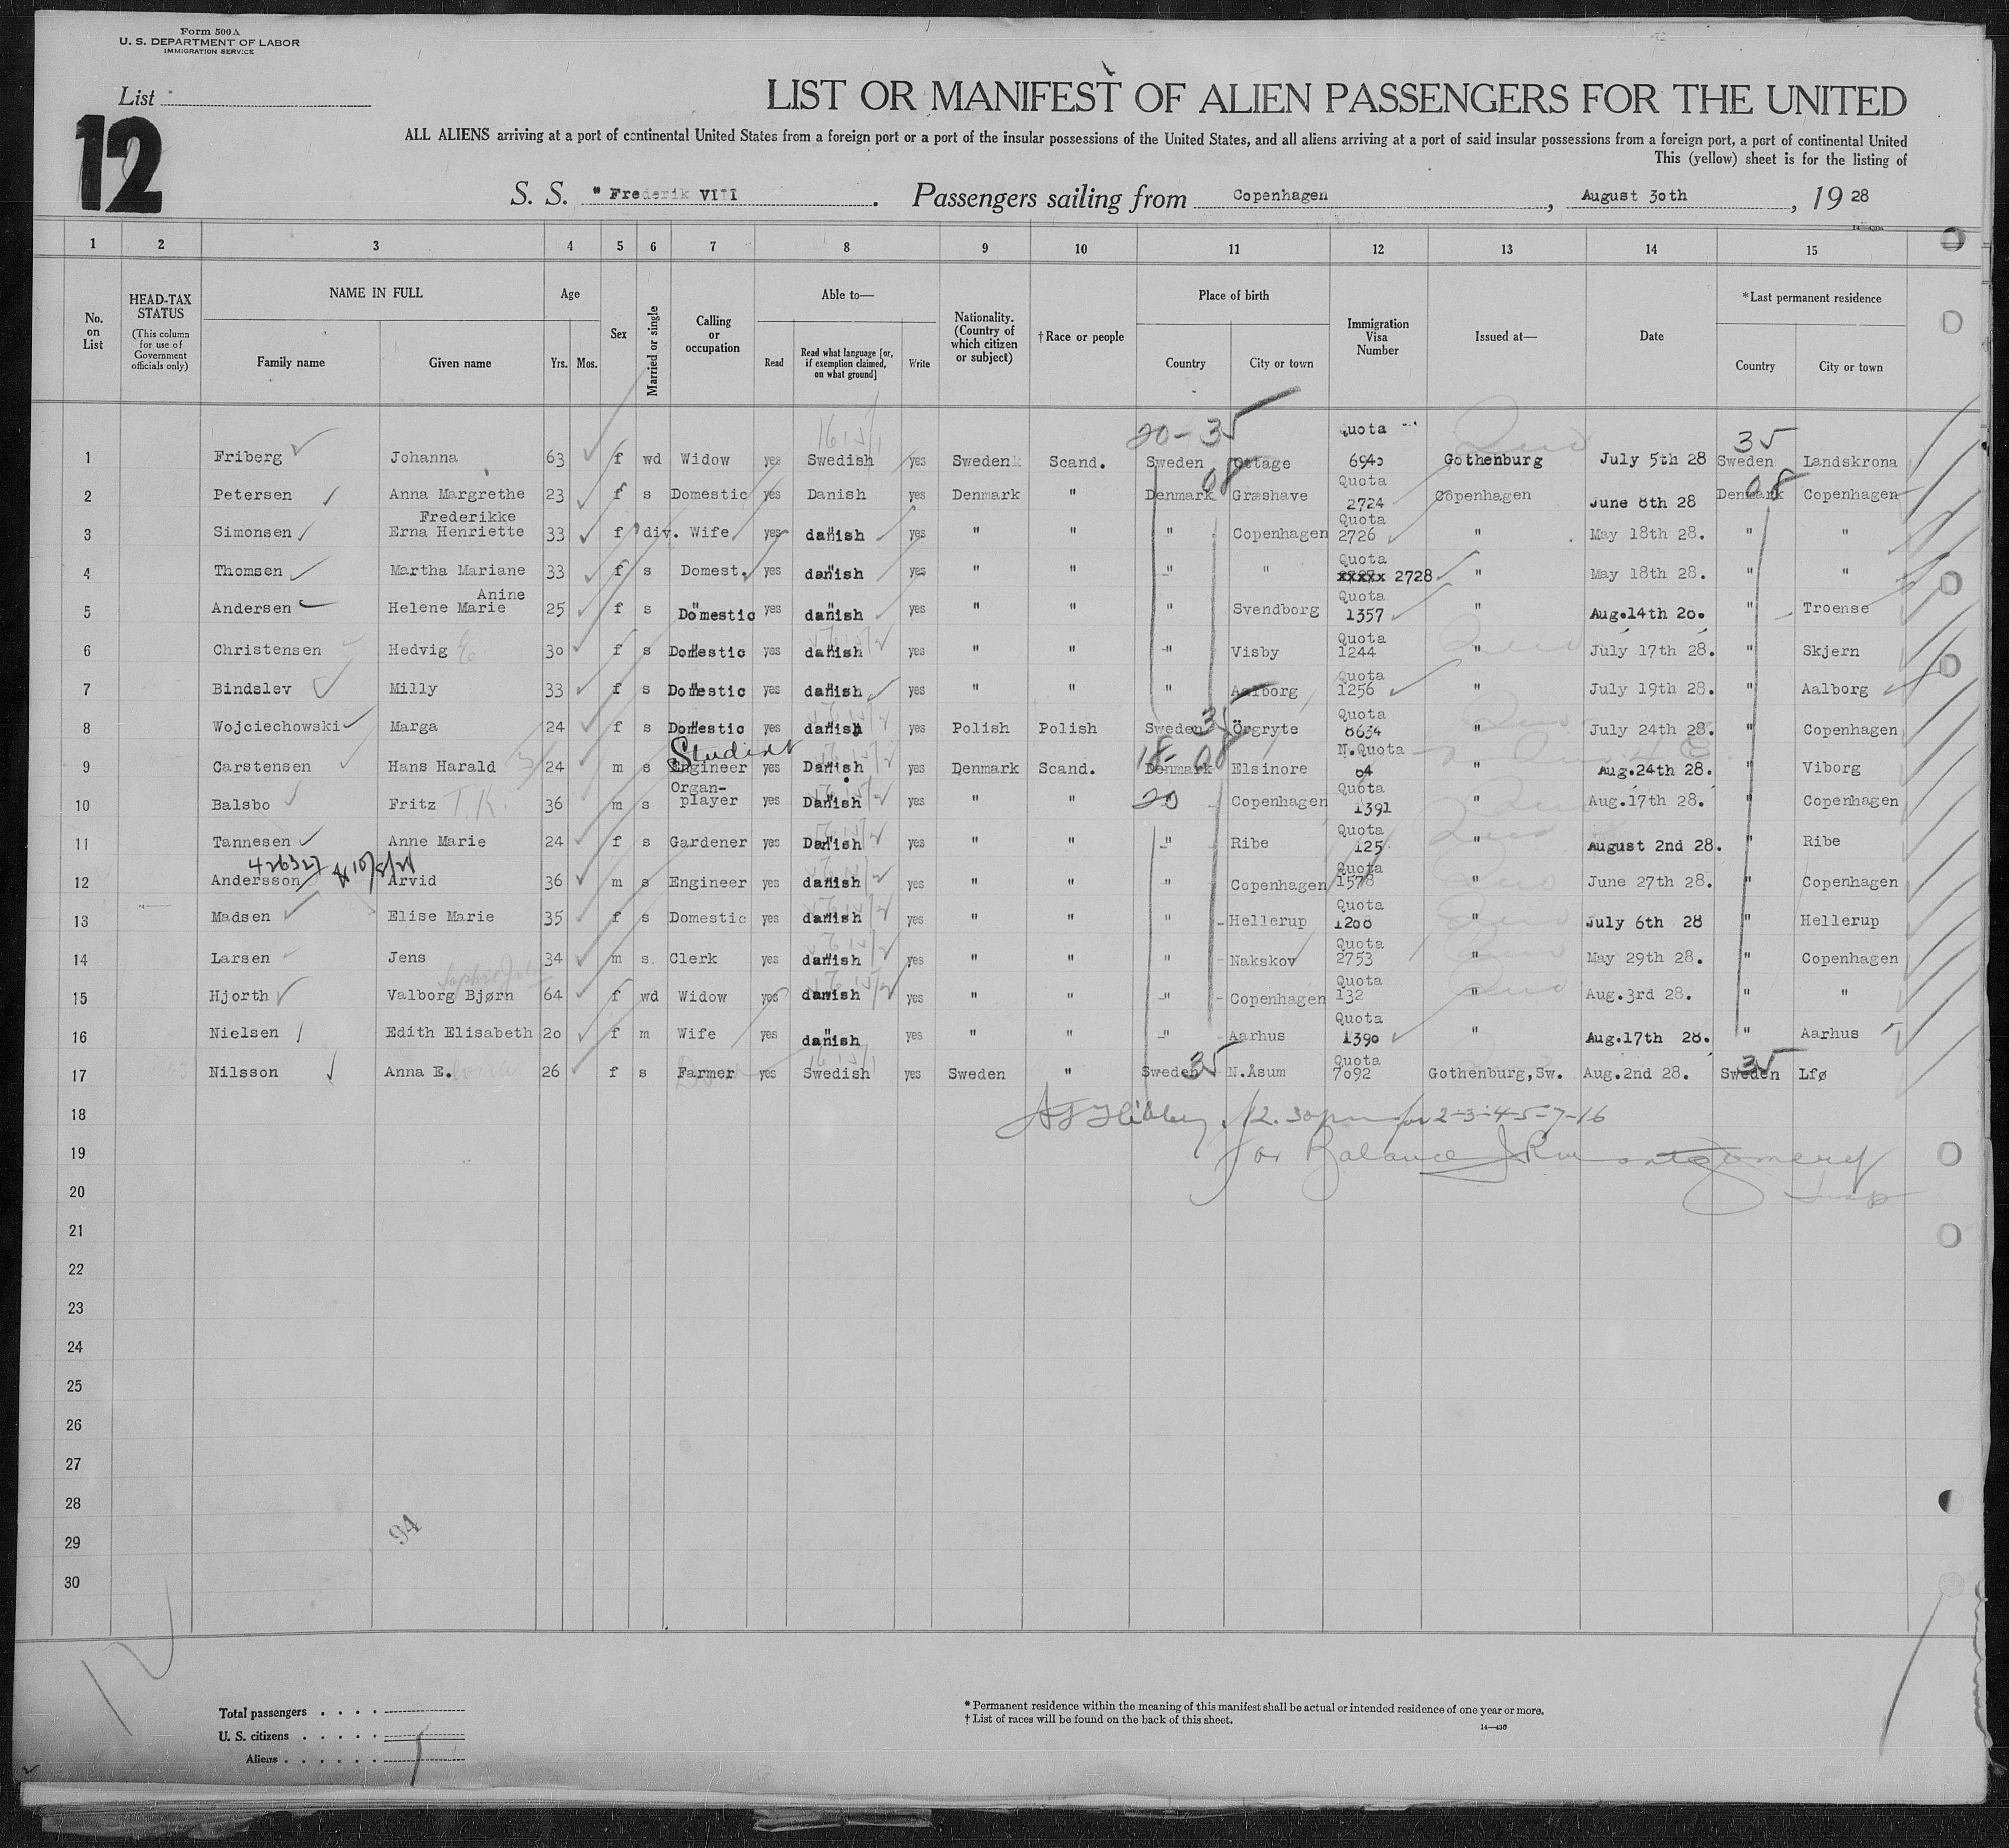 Form 500A
U. S. DEPARTMENT OF LABOR
IMMIGRATION SERVICE
List
12
LIST OR MANIFEST OF ALIEN PASSENGERS FOR THE UNITED
ALL ALIENS arriving at a port of continental United States from a foreign port or a port of the insular possessions of the United States, and all aliens arriving at a port of said insular possessions from a foreign port, a port of continental United
This (yellow) sheet is for the listing of
S. S. " Frederik VIII . Passengers sailing from Copenhagen , August 30th , 19 28
1 2 3 4 5 6 7 8 9 10 11 12 13 14 15
No. on List
HEAD-TAX STATUS (This column for use of Government officials only)
NAME IN FULL Family name Given name
Age Yrs. Mos.
Sex
Married or single
Calling or occupation
Able to— Read Read what language [or, if exemption claimed, on what ground] Write
Nationality. (Country of which citizen or subject)
†Race or people
Place of birth Country City or town
Immigration Visa Number
Issued at—
Date
*Last permanent residence Country City or town
20-35 35
1 Friberg Johanna 63 f wd Widow yes Swedish yes Sweden Scand. Sweden Quota 6940 Gothenburg July 5th 28 Sweden Landskrona
08 08
2 Petersen Anna Margrethe 23 f s Domestic yes Danish yes Denmark " Denmark Græshave Quota 2724 Copenhagen June 8th 28 Denmark Copenhagen
3 Simonsen Frederikke Erna Henriette 33 f div. Wife yes danish yes " " " Copenhagen Quota 2726 " May 18th 28. " "
4 Thomsen Martha Mariane 33 f s Domest. yes danish yes " " " " Quota xxxxx 2728 " May 18th 28. " "
5 Andersen Anine Helene Marie 25 f s Domestic yes danish yes " " " Svendborg Quota 1357 " Aug.14th 28. " Troense
6 Christensen Hedvig E. 30 f s Domestic yes danish yes " " " Visby Quota 1244 " July 17th 28. " Skjern
7 Bindslev Milly 33 f s Domestic yes danish yes " " " Aalborg Quota 1256 " July 19th 28. " Aalborg
8 Wojciechowski Marga 24 f s Domestic yes danish yes Polish Polish Sweden 35 Örgryte Quota 8634 " July 24th 28. " Copenhagen
Student 18-08
9 Carstensen Hans Harald 24 m s Engineer yes Danish yes Denmark Scand. Denmark Elsinore N.Quota 64 " Aug.24th 28. " Viborg
10 Balsbo Fritz T.K. 36 m s Organ-player yes Danish yes " " 20 Copenhagen Quota 1391 " Aug.17th 28. " Copenhagen
11 Tannesen Anne Marie 24 f s Gardener yes Danish yes " " " Ribe Quota 125 " August 2nd 28. " Ribe
426327
12 Andersson Arvid 36 m s Engineer yes danish yes " " " Copenhagen Quota 1578 " June 27th 28. " Copenhagen
13 Madsen Elise Marie 35 f s Domestic yes danish yes " " " Hellerup Quota 1208 " July 6th 28 " Hellerup
14 Larsen Jens 34 m s. Clerk yes danish yes " " " Nakskov Quota 2753 " May 29th 28. " Copenhagen
15 Hjorth Valborg Bjørn 64 f wd Widow yes danish yes " " " Copenhagen Quota 132 " Aug.3rd 28. " "
16 Nielsen Edith Elisabeth 20 f m Wife yes danish yes " " " Aarhus Quota 1390 " Aug.17th 28. " Aarhus
17 Nilsson Anna E. 26 f s Farmer yes Swedish yes Sweden " Sweden 35 N.Åsum Quota 7092 Gothenburg,Sw. Aug.2nd 28. Sweden 35 Lfø
18 12.30pm for 2-3-4-5-7-16
19 for Balance J R Montgomery
20 Insp
21
22
23
24
25
26
27
28
29
94
30
Total passengers
U. S. citizens
Aliens
* Permanent residence within the meaning of this manifest shall be actual or intended residence of one year or more.
† List of races will be found on the back of this sheet.
14—430